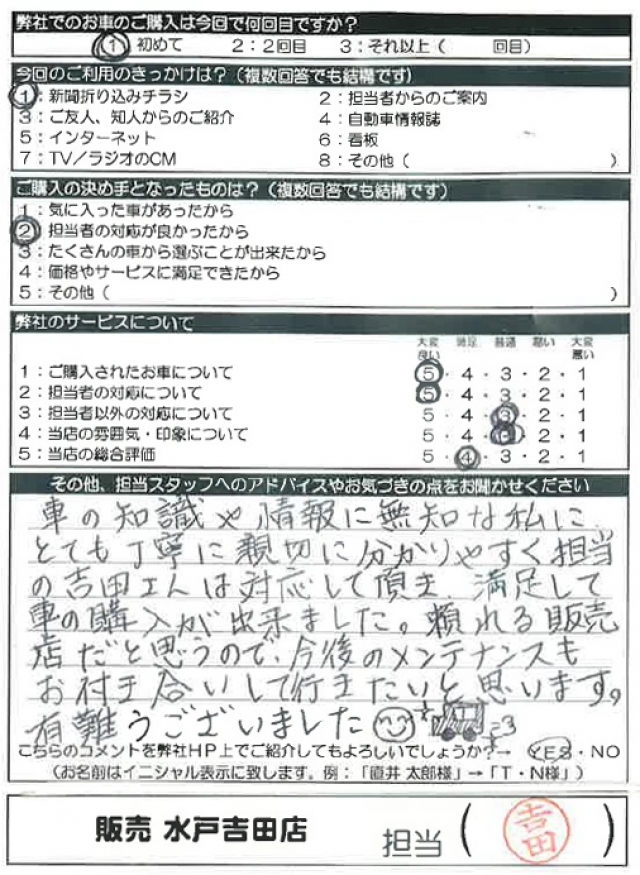 弊社でのお車のご購入は今回で何回目ですか？
1 初めて 2：2回目 3：それ以上（ 回目）
今回のご利用のきっかけは？（複数回答でも結構です）
1：新聞折り込みチラシ 2：担当者からのご案内
3：ご友人、知人からのご紹介 4：自動車情報誌
5：インターネット 6：看板
7：TV／ラジオのCM 8：その他（ ）
ご購入の決め手となったものは？（複数回答でも結構です）
1：気に入った車があったから
2：担当者の対応が良かったから
3：たくさんの車から選ぶことが出来たから
4：価格やサービスに満足できたから
5：その他（ ）
弊社のサービスについて
大変 満足 普通 悪い 大変
良い 悪い
1：ご購入されたお車について 5・4・3・2・1
2：担当者の対応について 5・4・3・2・1
3：担当者以外の対応について 5・4・3・2・1
4：当店の雰囲気・印象について 5・4・3・2・1
5：当店の総合評価 5・4・3・2・1
その他、担当スタッフへのアドバイスやお気づきの点をお聞かせください
車の知識や情報に無知な私に
とても丁寧に親切に分かりやすく担当
の吉田さんは対応して頂き、満足して
車の購入が出来ました。頼れる販売
店だと思うので、今後のメンテナンスも
お付き合いして行きたいと思います。
有難うございました
こちらのコメントを弊社HP上でご紹介してもよろしいでしょうか？→ YES・NO
（お名前はイニシャル表示に致します。例：「直井 太郎様」→「T・N様」）
販売 水戸吉田店 担当（ 吉田 ）